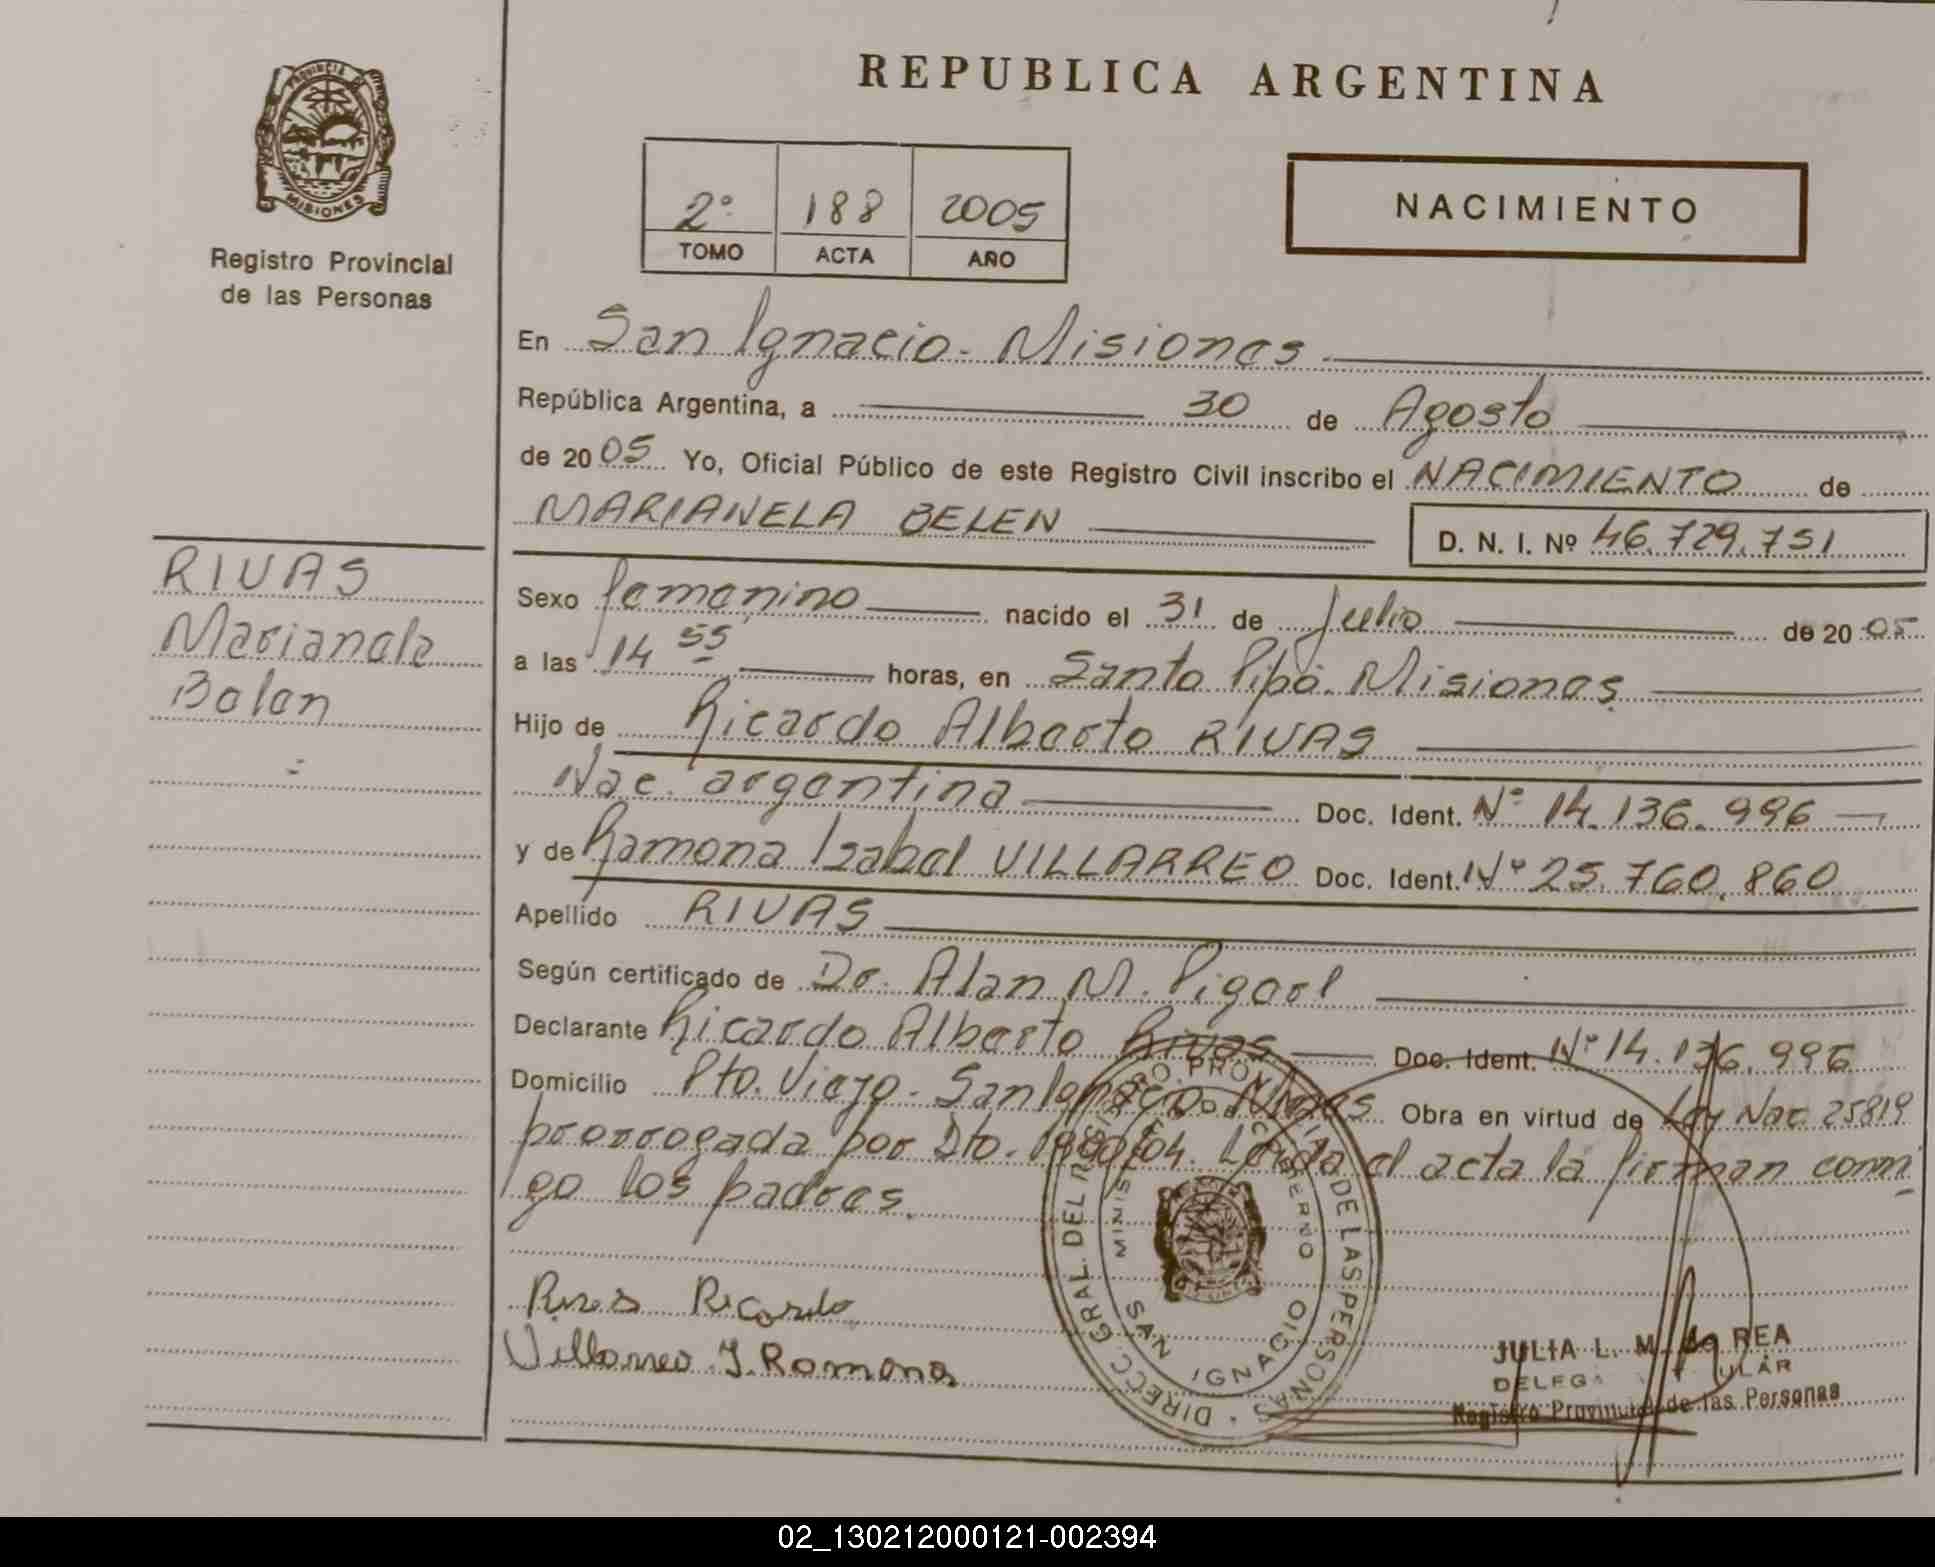 REPUBLICA ARGENTINA
PROVINCIA DE
MISIONES
Registro Provincial
de las Personas
2º 188 2005
TOMO ACTA AÑO
NACIMIENTO
En San Ignacio - Misiones
República Argentina, a 30 de Agosto
de 2005 Yo, Oficial Público de este Registro Civil inscribo el NACIMIENTO de
MARIANELA BELEN
D. N. I. Nº 46.729.751
RIVAS
Marianela
Belen
Sexo femenino nacido el 31 de Julio de 2005
a las 14 55 horas, en Santo Pipó. Misiones
Hijo de Ricardo Alberto RIVAS
Nac. argentina Doc. Ident. Nº 14.136.996
y de Ramona Isabel VILLARREO Doc. Ident. Nº 25.760.860
Apellido RIVAS
Según certificado de Dr. Alan M.
Declarante Ricardo Alberto Rivas Doc. Ident. Nº 14.136.996
Domicilio Pto. Viejo - San Ignacio Mnes Obra en virtud de Ley Nac 25819
prorrogada por Dto. Leida el acta la firman conmi
go los padres.
Rivas Ricardo
Villarreo I. Ramona
DIRECC. GRAL. DEL REGISTRO PROVINCIAL DE LAS PERSONAS
MINISTERIO DE GOBIERNO
SAN IGNACIO
JULIA L. M. de REA
Registro Provincial de las Personas
02_130212000121-002394